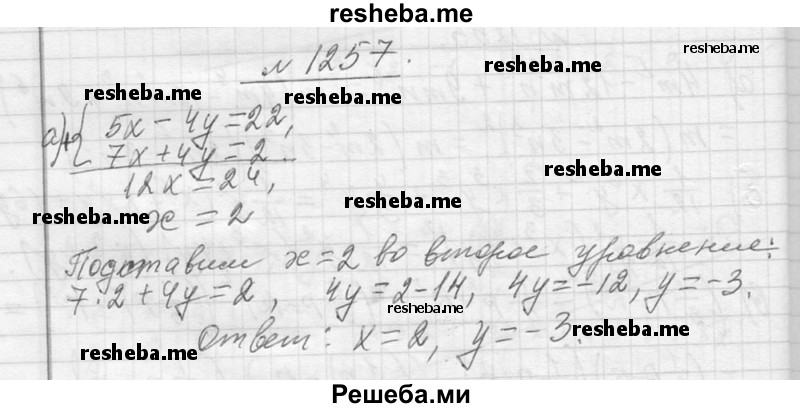 resheba.me
№ 1257.
resheba.me
resheba.me
resheba.me
resheba.me
а) + { 5x − 4y = 22,
7x + 4y = 2.
12x = 24,
resheba.me
resheba.me
x = 2
Подставим x = 2 во второе уравнение:
7·2 + 4y = 2, 4y = 2−14, 4y = −12, y = −3.
resheba.me
Ответ: x = 2, y = −3.
resheba.me
resheba.me
Решеба.ми